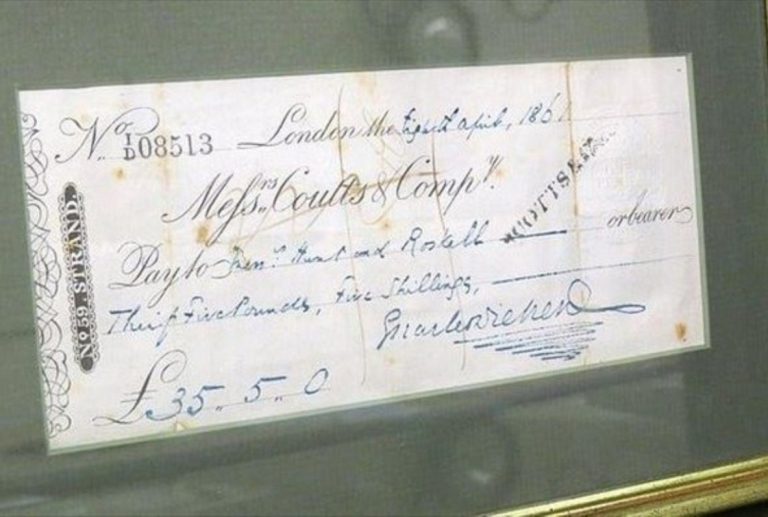 No. I/D 08513 London the Eighth April, 1861
Messrs. Coutts & Compy.
Pay to Messrs. Hunt and Roskell or bearer
Thirty Five Pounds, Five Shillings,
Charles Dickens
£35.. 5.. 0
No. 59. STRAND.